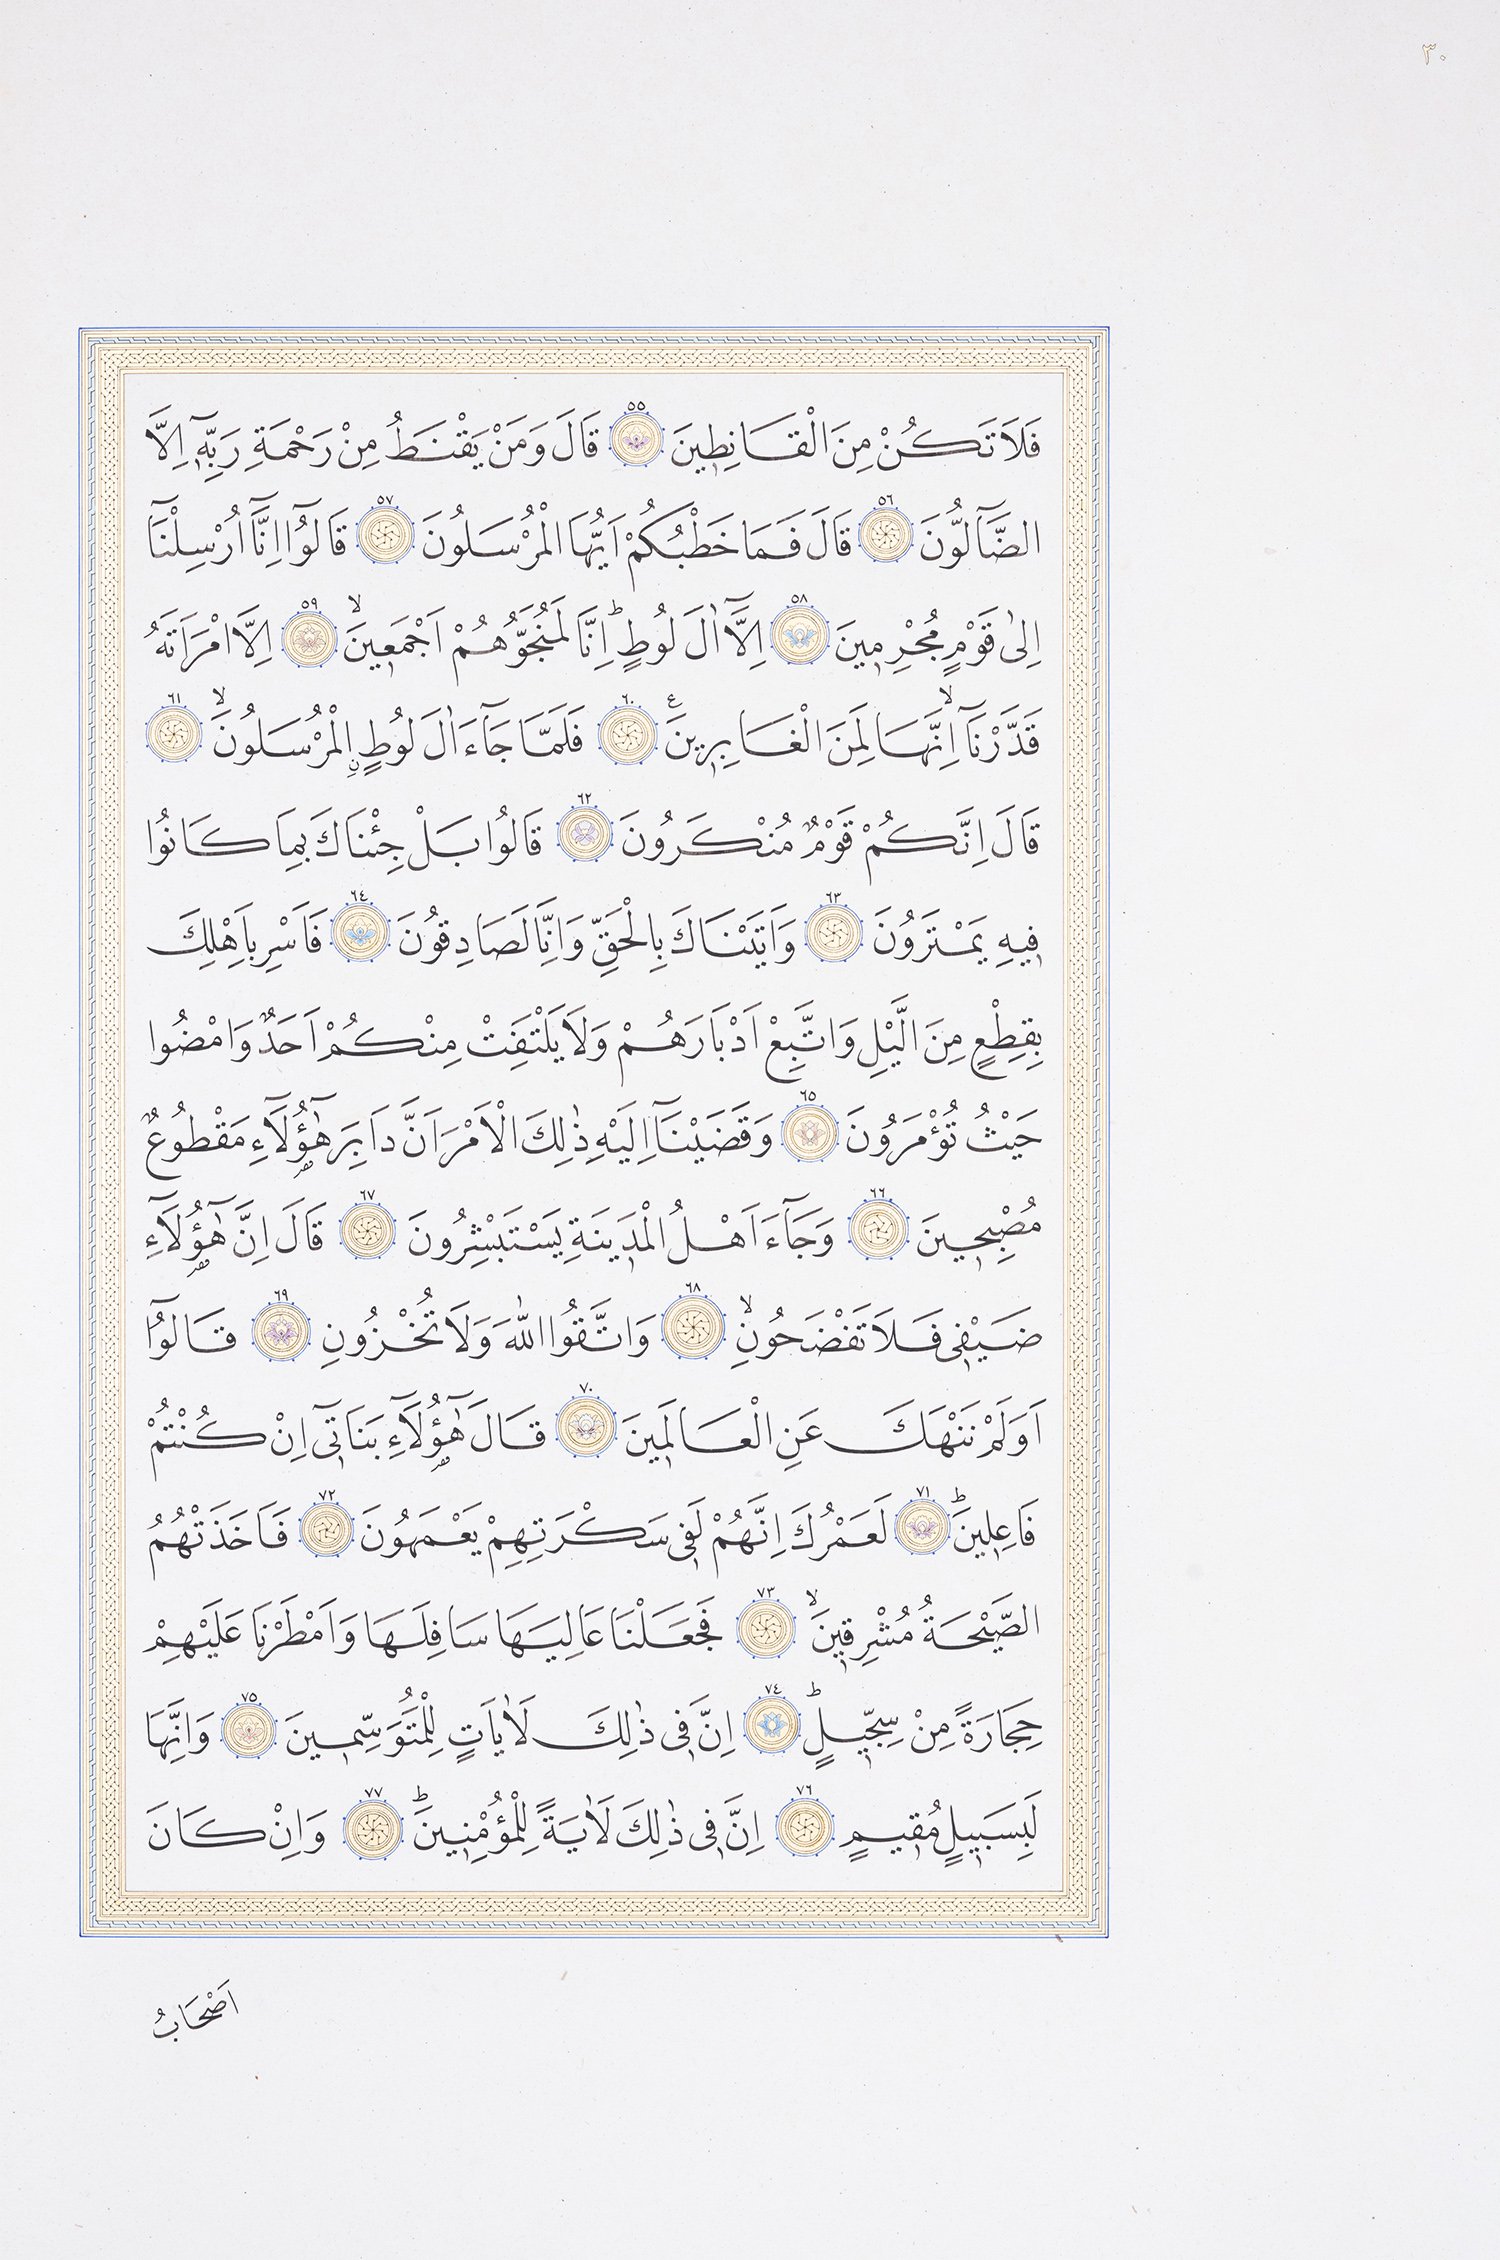 ٣٠
فَلَا تَكُنْ مِنَ الْقَانِطِينَ ٥٥ قَالَ وَمَنْ يَقْنَطُ مِنْ رَحْمَةِ رَبِّهِٓ اِلَّا
الضَّٓالُّونَ ٥٦ قَالَ فَمَا خَطْبُكُمْ اَيُّهَا الْمُرْسَلُونَ ٥٧ قَالُٓوا اِنَّٓا اُرْسِلْنَٓا
اِلٰى قَوْمٍ مُجْرِمِينَ ٥٨ اِلَّٓا اٰلَ لُوطٍ ؕ اِنَّا لَمُنَجُّوهُمْ اَجْمَعِينَ ۙ ٥٩ اِلَّا امْرَاَتَهُ
قَدَّرْنَٓا ۙ اِنَّهَا لَمِنَ الْغَابِرِينَ ع ٦٠ فَلَمَّا جَٓاءَ اٰلَ لُوطٍ ࣙالْمُرْسَلُونَ ۙ ٦١
قَالَ اِنَّكُمْ قَوْمٌ مُنْكَرُونَ ٦٢ قَالُوا بَلْ جِئْنَاكَ بِمَا كَانُوا
فِيهِ يَمْتَرُونَ ٦٣ وَاَتَيْنَاكَ بِالْحَقِّ وَاِنَّا لَصَادِقُونَ ٦٤ فَاَسْرِ بِاَهْلِكَ
بِقِطْعٍ مِنَ الَّيْلِ وَاتَّبِعْ اَدْبَارَهُمْ وَلَا يَلْتَفِتْ مِنْكُمْ اَحَدٌ وَامْضُوا
حَيْثُ تُؤْمَرُونَ ٦٥ وَقَضَيْنَٓا اِلَيْهِ ذٰلِكَ الْاَمْرَ اَنَّ دَابِرَ هٰٓؤُ۬لَٓاءِ مَقْطُوعٌ
مُصْبِحِينَ ٦٦ وَجَٓاءَ اَهْلُ الْمَدِينَةِ يَسْتَبْشِرُونَ ٦٧ قَالَ اِنَّ هٰٓؤُ۬لَٓاءِ
ضَيْفِى فَلَا تَفْضَحُونِ ۙ ٦٨ وَاتَّقُوا اللّٰهَ وَلَا تُخْزُونِ ٦٩ قَالُٓوا
اَوَلَمْ نَنْهَكَ عَنِ الْعَالَمِينَ ٧٠ قَالَ هٰٓؤُ۬لَٓاءِ بَنَاتِٓى اِنْ كُنْتُمْ
فَاعِلِينَ ؕ ٧١ لَعَمْرُكَ اِنَّهُمْ لَفِى سَكْرَتِهِمْ يَعْمَهُونَ ٧٢ فَاَخَذَتْهُمُ
الصَّيْحَةُ مُشْرِقِينَ ۙ ٧٣ فَجَعَلْنَا عَالِيَهَا سَافِلَهَا وَاَمْطَرْنَا عَلَيْهِمْ
حِجَارَةً مِنْ سِجِّيلٍ ؕ ٧٤ اِنَّ فِى ذٰلِكَ لَاٰيَاتٍ لِلْمُتَوَسِّمِينَ ٧٥ وَاِنَّهَا
لَبِسَبِيلٍ مُقِيمٍ ٧٦ اِنَّ فِى ذٰلِكَ لَاٰيَةً لِلْمُؤْمِنِينَ ؕ ٧٧ وَاِنْ كَانَ
اَصْحَابُ